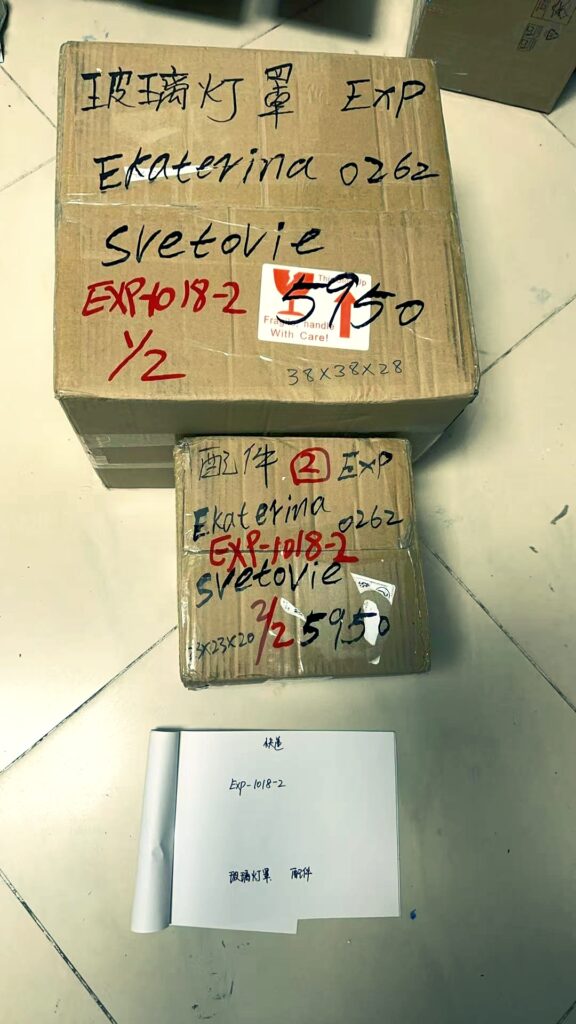 玻璃灯罩 EXP
Ekaterina 0262
svetovie
EXP-1018-2
5950
With Care!
1/2
38×38×28
配件 ② EXP
Ekaterina 0262
EXP-1018-2
svetovie
3×23×20 2/2 5950
快递
Exp-1018-2
玻璃灯罩 配件